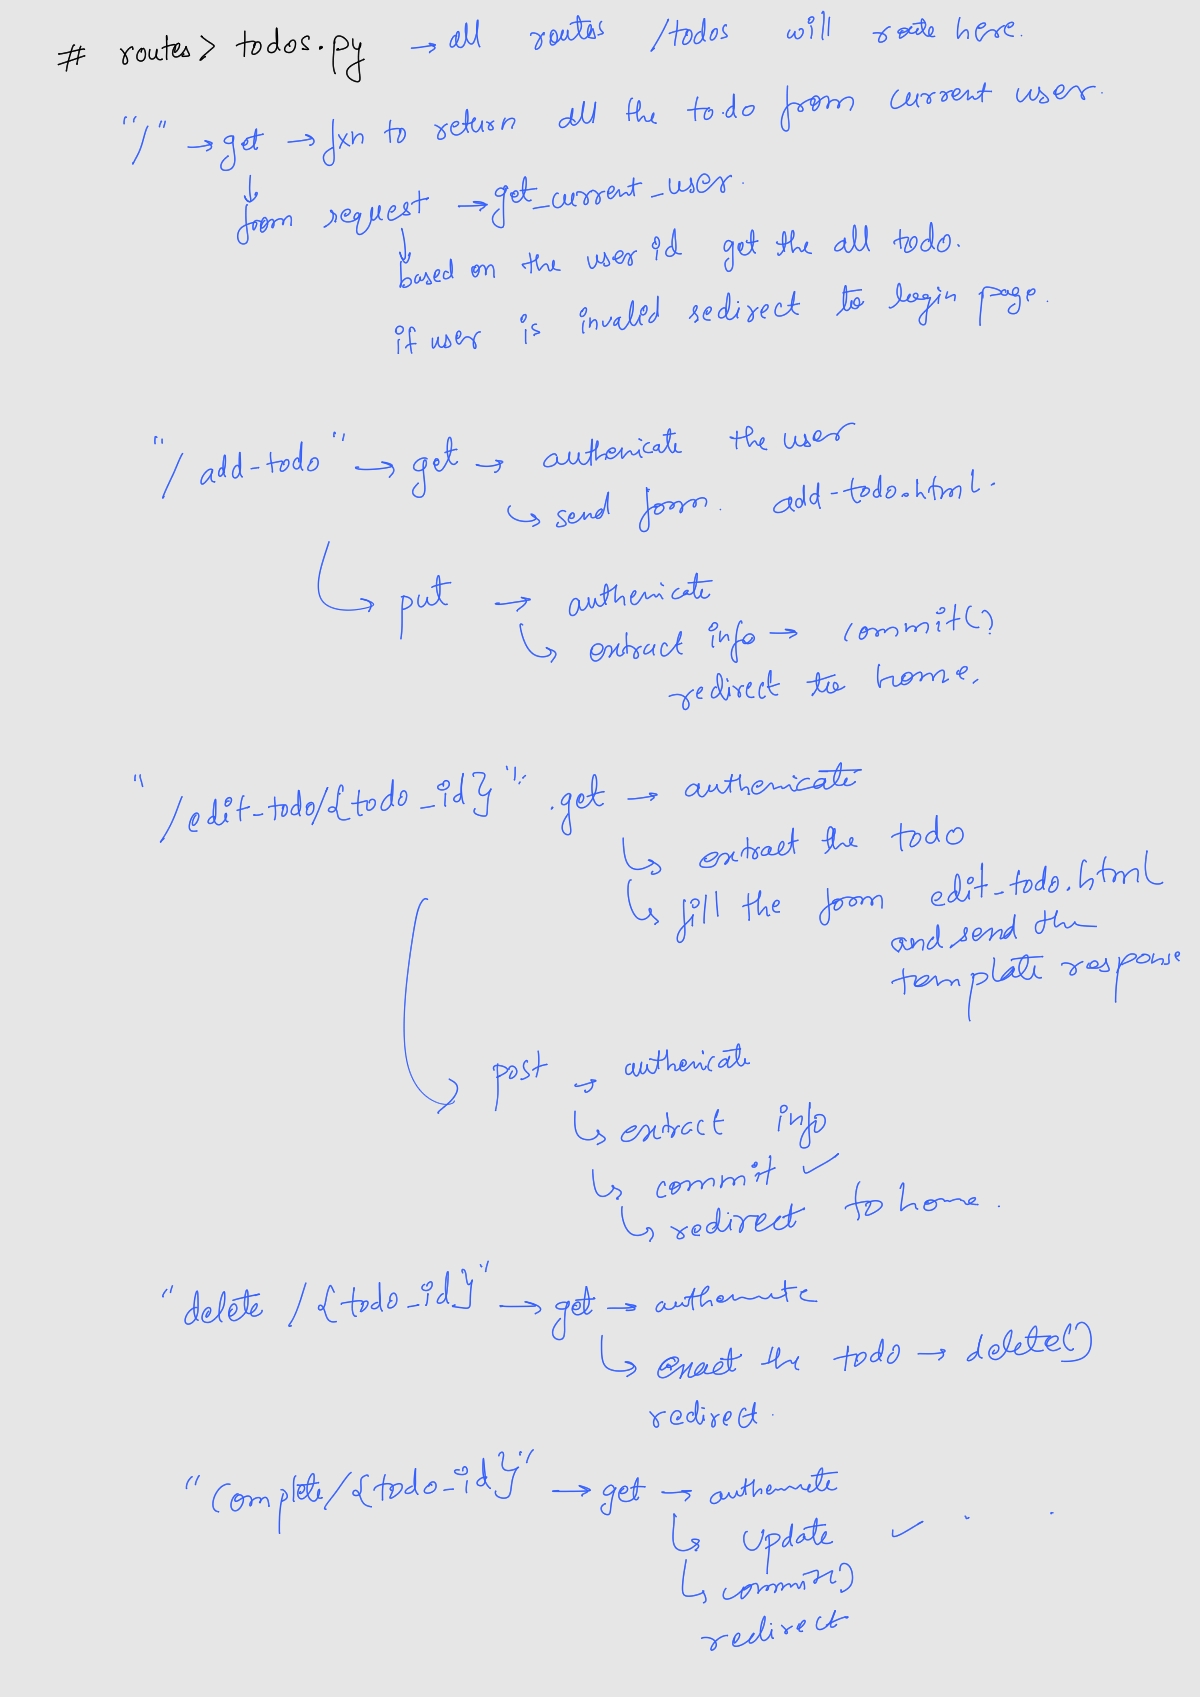 # routes > todos.py → all routes /todos will route here.
"/" → get → fxn to return all the todo from current user.
↓
from request → get_current_user.
↓
based on the user id get the all todo.
if user is invalid redirect to login page.
"/add-todo" → get → authenicate the user
↳ send form. add-todo.html.
↳ put → authenicate
↳ extract info → commit()
redirect to home.
"/edit-todo/{todo_id}" .get → authenicate
↳ extract the todo
↳ fill the form edit_todo.html
and send the
template response
post → authenicate
↳ extract info
↳ commit ✓
↳ redirect to home.
"delete /{todo_id}" → get →
↳ the todo → delete()
redirect.
"complete/{todo_id}" → get →
↳ update ✓
↳ commit()
redirect